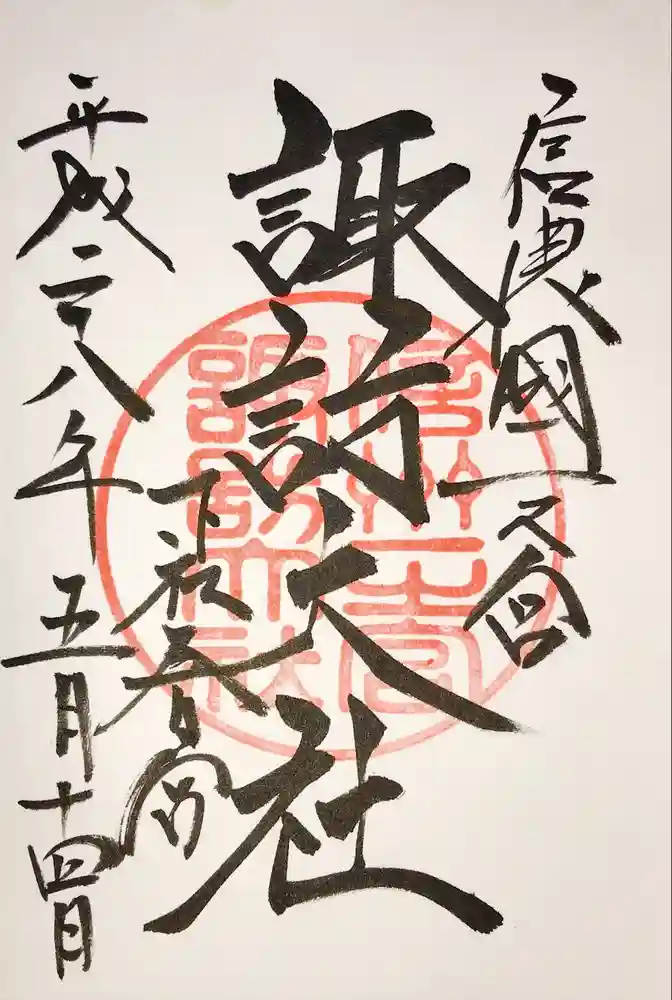 信濃國一之宮
諏訪大社
下社春宮
平成二十八年五月十四日
信州一宮
諏訪大社